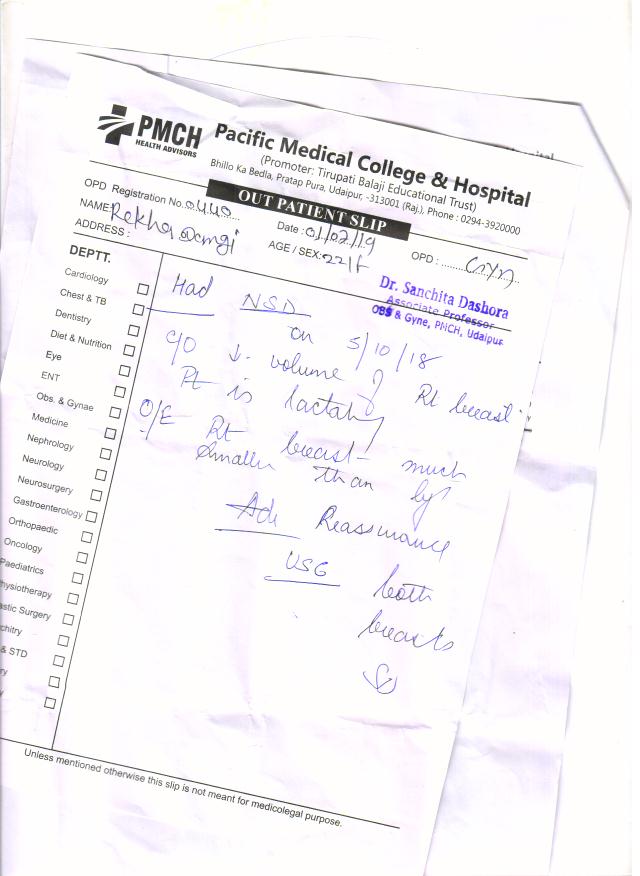 PMCH
HEALTH ADVISORS
Pacific Medical College & Hospital
(Promoter: Tirupati Balaji Educational Trust)
Bhillo Ka Bedla, Pratap Pura, Udaipur, -313001 (Raj.), Phone : 0294-3920000
OUT PATIENT SLIP
OPD Registration No. 0440
Date : 01/02/19
OPD : Gyn
NAME: Rekha Dangi
AGE / SEX: 22/f
ADDRESS :
Dr. Sanchita Dashora
Associate Professor
OBS & Gyne, PMCH, Udaipur
DEPTT.
Cardiology
Chest & TB
Dentistry
Diet & Nutrition
Eye
ENT
Obs. & Gynae
Medicine
Nephrology
Neurology
Neurosurgery
Gastroenterology
Orthopaedic
Oncology
Paediatrics
hysiotherapy
astic Surgery
chitry
& STD
ry
y
Had NSD
on 5/10/18
C/O ↓ volume of Rt breast
Pt is lactating
O/E Rt breast much
smaller than
Adv Reassurance
USG both
breasts
Unless mentioned otherwise this slip is not meant for medicolegal purpose.